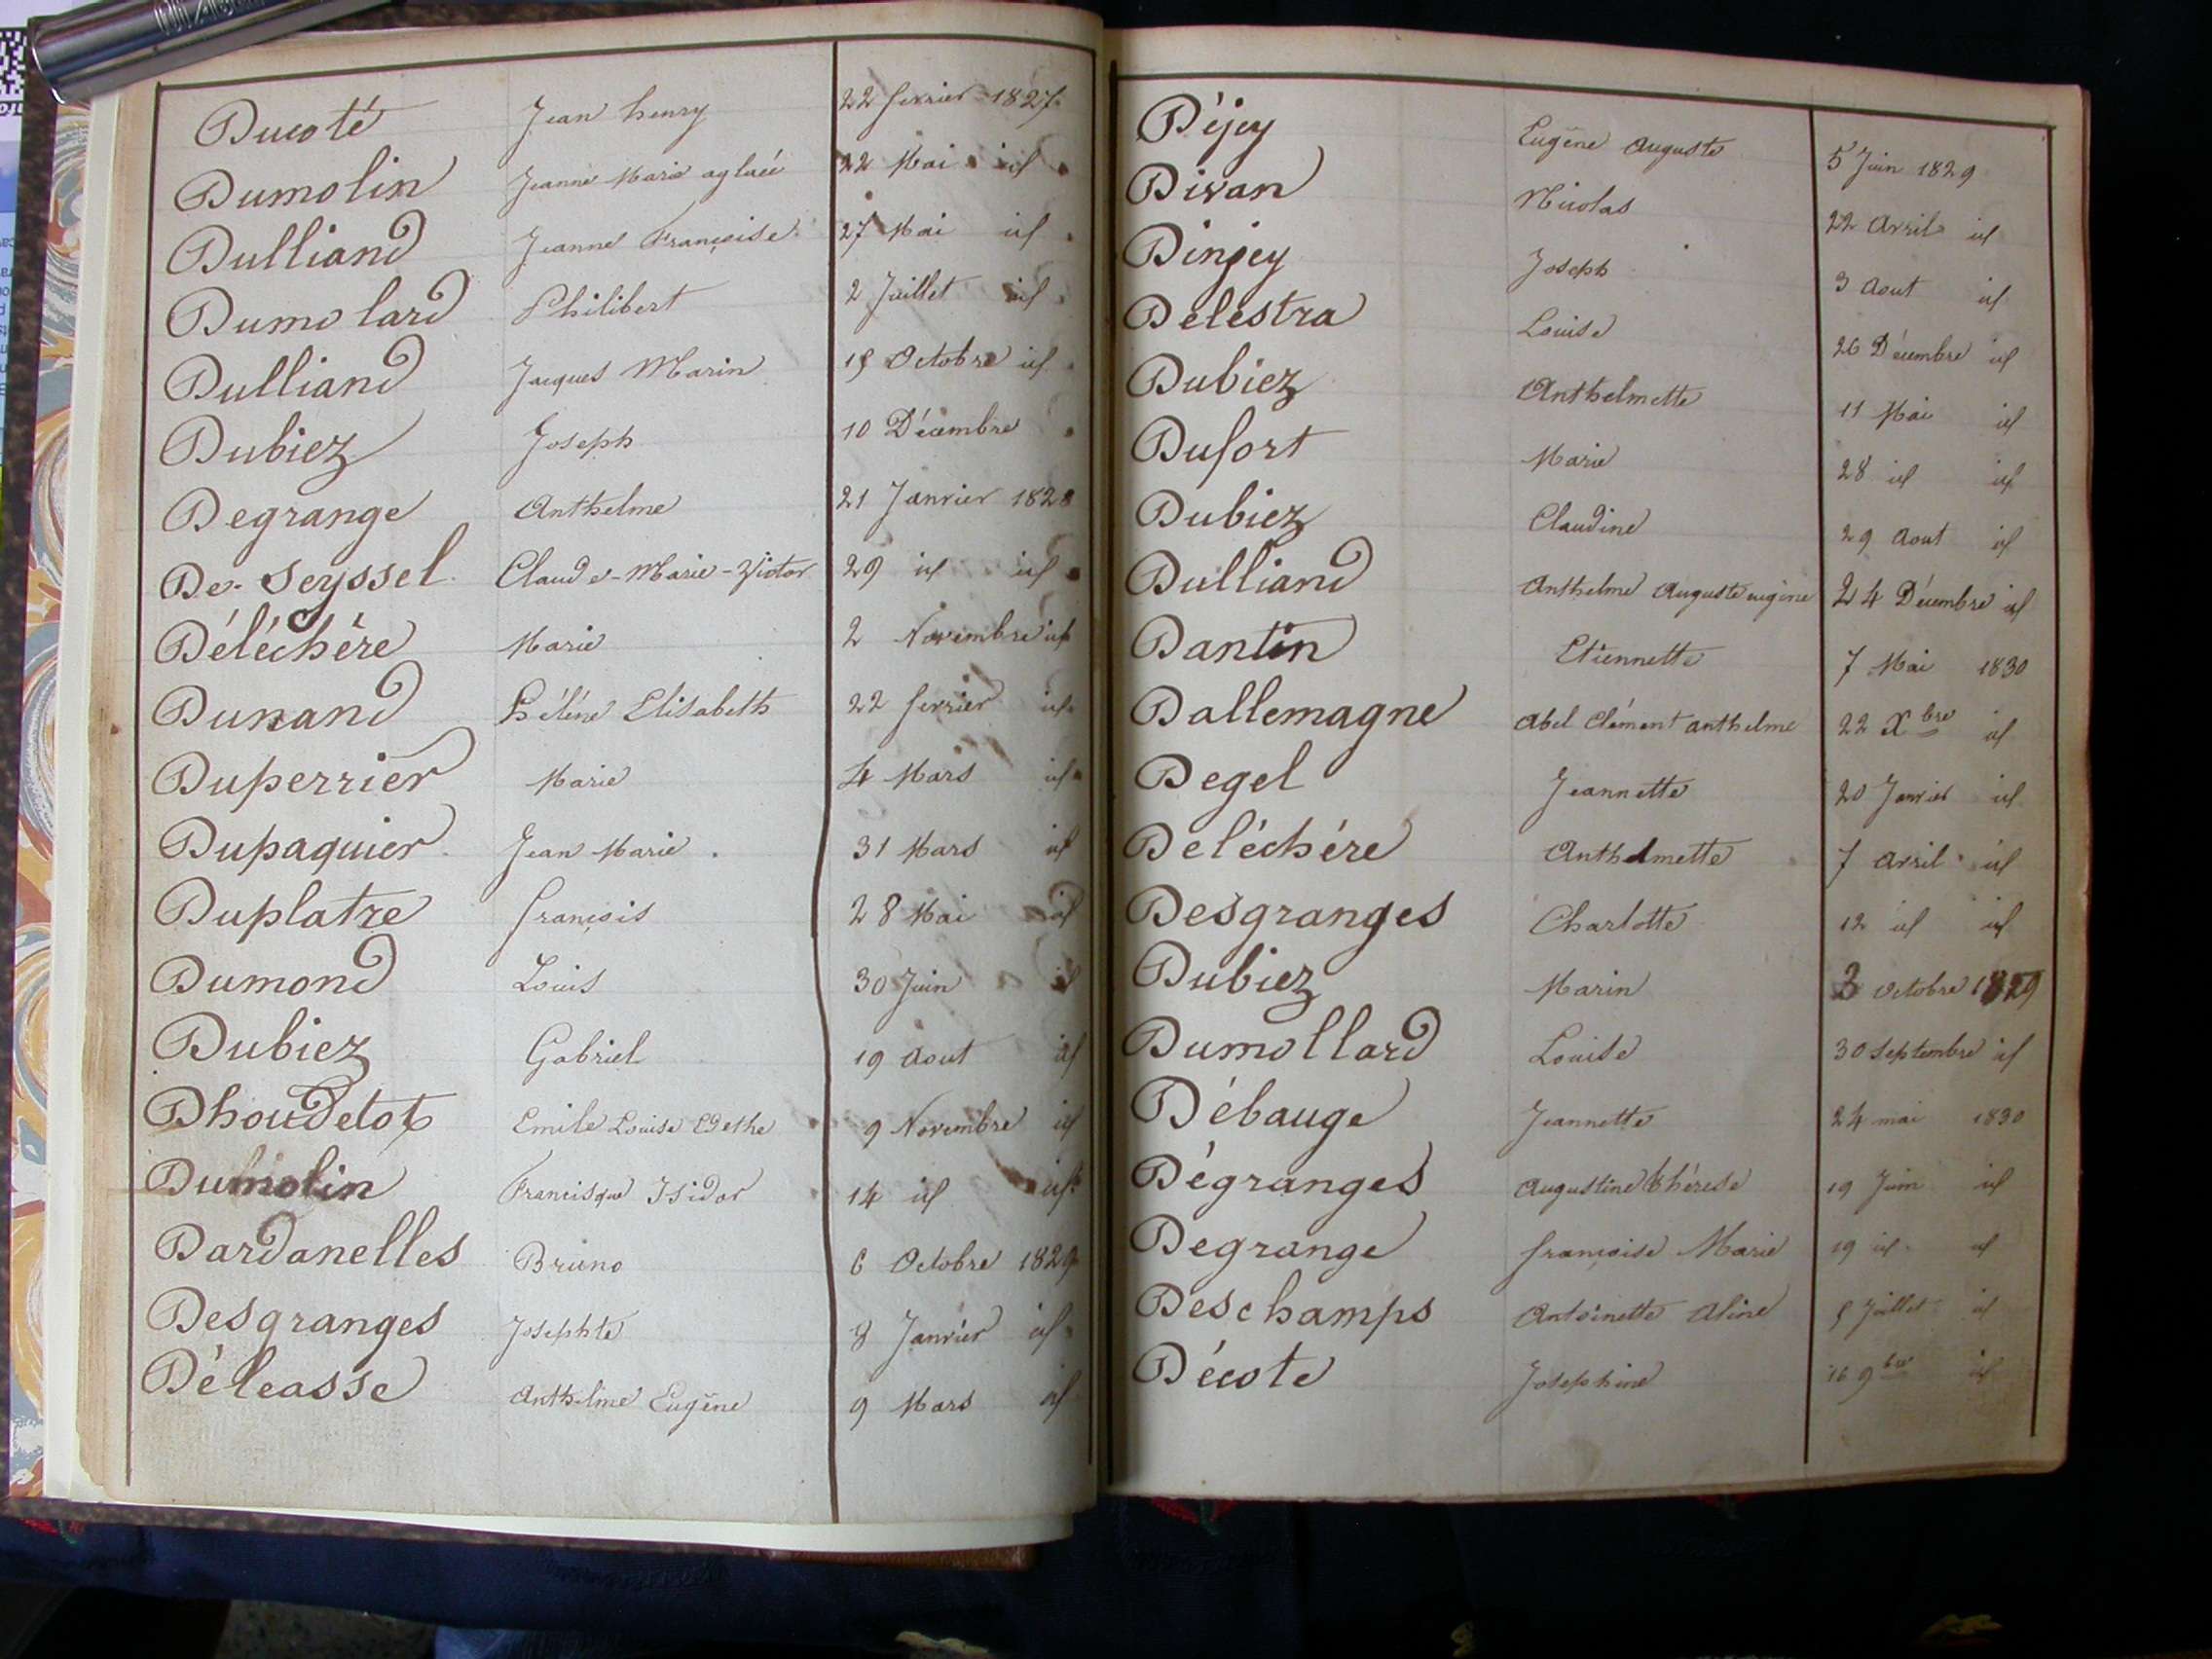 Ducoté Jean henry 22 fevrier 1827
Dumolin Jeanne Marie aglaée 22 Mai id
Dulliand Jeanne Françoise 27 Mai id
Dumolard Philibert 2 Juillet id
Dulliand Jacques Marin 15 Octobre id
Dubiez Joseph 10 Décembre
Degrange Anthelme 21 Janvier 1828
De-Seyssel Claude-Marie-Victor 29 id id
Déléchère Marie 2 Novembre id
Dunand hélène Elisabeth 22 fevrier id
Duperrier Marie 4 Mars id
Dupaquier Jean Marie 31 Mars id
Duplatre françois 28 Mai id
Dumond Louis 30 Juin id
Dubiez Gabriel 19 Aout id
Dhoudetot Emile Louise Edethe 9 Novembre id
Dumolin Francisque Isidor 14 id id
Dardanelles Bruno 6 Octobre 1829
Desgranges Josephte 8 Janvier id
Déleasse Anthelme Eugène 9 Mars id
Déjey Eugène Auguste 5 Juin 1829
Divan Nicolas 22 Avril id
Dinjey Joseph 3 Aout id
Delestra Louise 26 Décembre id
Dubiez Anthelmette 11 Mai id
Dufort Marie 28 id id
Dubiez Claudine 29 Aout id
Dulliand Anthelme Auguste eugène 24 Décembre id
Dantin Etiennette 7 Mai 1830
Dallemagne Abel Clément anthelme 22 Xbre id
Degel Jeannette 20 Janvier id
Deléchére Anthelmette 7 Avril id
Desgranges Charlotte 12 id id
Dubiez Marin 3 Octobre 1829
Dumollard Louise 30 Septembre id
Débauge Jeannette 24 mai 1830
Dégranges Augustine thérese 19 Juin id
Degrange françoise Marie 19 id id
Deschamps Antoinette Aline 5 Juillet id
Décote Josephine 16 9bre id